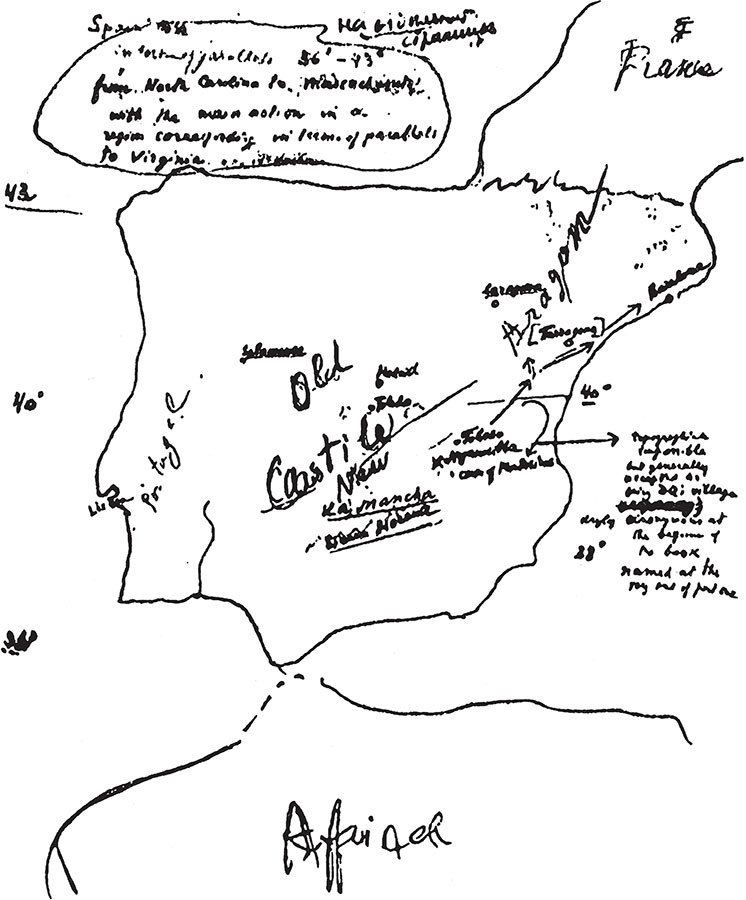 Spain
на отдельной
странице
in terms of parallels 36° – 43°
from North Carolina to Massachusetts
with the main action in a
region corresponding in terms of parallels
to Virginia
France
43
Aragon
Barcelona
[Tarragona]
Salamanca
Old
Madrid
Toledo
40°
40°
Portugal
Castile
New
Toboso
Cave of Montesinos
topographically
impossible
but generally
accepted as
being DQ's village
anonymous at
the beginning of
the book
named at the
very end of part one
La Mancha
Sierra Morena
Lisbon
38°
36°
Africa